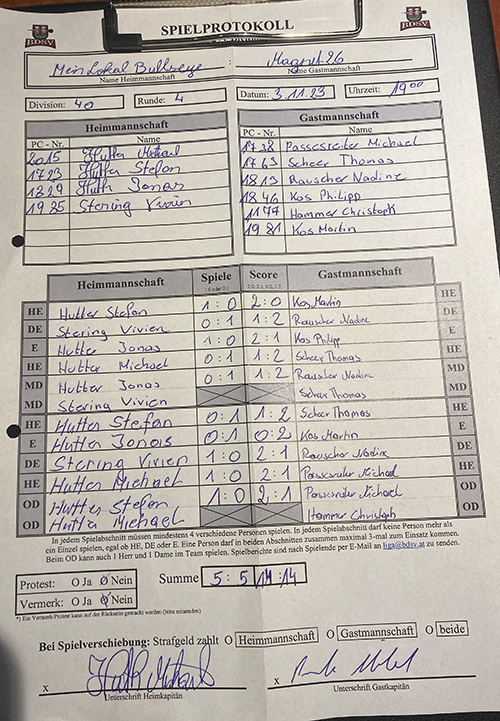 BDSV
SPIELPROTOKOLL
BDSV
Mein Lokal Bullseye
Name Heimmannschaft
Magnut 26
Name Gastmannschaft
Division: 40
Runde: 4
Datum: 3.11.23
Uhrzeit: 19 00
Heimmannschaft
PC - Nr. Name
2015 Hutter Michael
1723 Hutter Stefan
1229 Hutter Jonas
1925 Stering Vivien
Gastmannschaft
PC - Nr. Name
1738 Passesreiter Michael
1763 Scheer Thomas
1813 Rauscher Nadine
1846 Kos Philipp
1177 Hammer Christoph
1981 Kos Martin
Heimmannschaft Spiele Score Gastmannschaft
HE Hutter Stefan 1:0 2:0 Kos Martin HE
DE Stering Vivien 0:1 1:2 Rauscher Nadine DE
E Hutter Jonas 1:0 2:1 Kos Philipp E
HE Hutter Michael 0:1 1:2 Scheer Thomas HE
MD Hutter Jonas 0:1 1:2 Rauscher Nadine MD
MD Stering Vivien Scheer Thomas MD
HE Hutter Stefan 0:1 1:2 Scheer Thomas HE
E Hutter Jonas 0:1 0:2 Kos Martin E
DE Stering Vivien 1:0 2:1 Rauscher Nadine DE
HE Hutter Michael 1:0 2:1 Passesreiter Michael HE
OD Hutter Stefan 1:0 2:1 Passesreiter Michael OD
OD Hutter Michael Hammer Christoph OD
In jedem Spielabschnitt müssen mindestens 4 verschiedene Personen spielen. In jedem Spielabschnitt darf keine Person mehr als
ein Einzel spielen, egal ob HE, DE oder E. Eine Person darf in beiden Abschnitten zusammen maximal 3-mal zum Einsatz kommen.
Beim OD kann auch 1 Herr und 1 Dame im Team spielen. Spielberichte sind nach Spielende per E-Mail an liga@bdsv.at zu senden.
Protest: O Ja O Nein
Summe 5:5 14:14
Vermerk: O Ja O Nein
*) Ein Vermerk/Protest kann auf der Rückseite gemacht werden (bitte mitsenden)
Bei Spielverschiebung: Strafgeld zahlt O Heimmannschaft O Gastmannschaft O beide
x
Unterschrift Heimkapitän
x
Unterschrift Gastkapitän